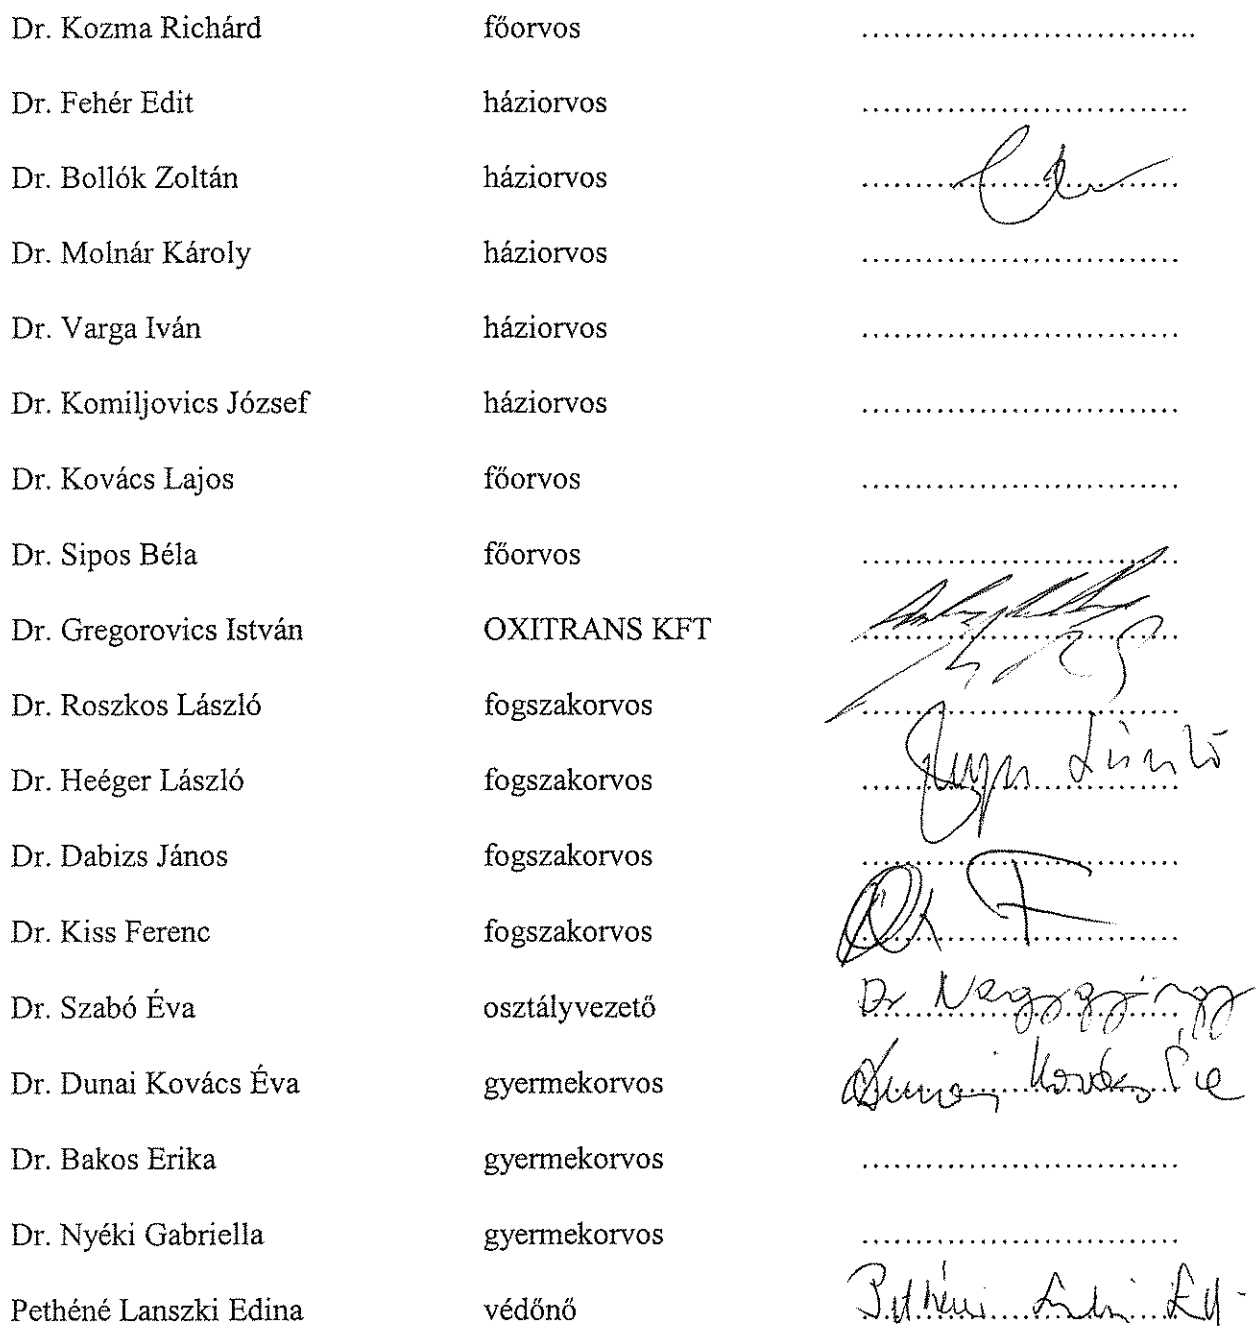 Dr. Kozma Richárd főorvos ...............................
Dr. Fehér Edit háziorvos ..............................
Dr. Bollók Zoltán háziorvos .............................
Dr. Molnár Károly háziorvos .............................
Dr. Varga Iván háziorvos .............................
Dr. Komiljovics József háziorvos .............................
Dr. Kovács Lajos főorvos .............................
Dr. Sipos Béla főorvos .............................
Dr. Gregorovics István OXITRANS KFT .............................
Dr. Roszkos László fogszakorvos .............................
Dr. Heéger László fogszakorvos .............................
Dr. Dabizs János fogszakorvos .............................
Dr. Kiss Ferenc fogszakorvos .............................
Dr. Szabó Éva osztályvezető Dr Nagygyörgy
Dr. Dunai Kovács Éva gyermekorvos Dunai Kovács Éva
Dr. Bakos Erika gyermekorvos .............................
Dr. Nyéki Gabriella gyermekorvos .............................
Pethéné Lanszki Edina védőnő